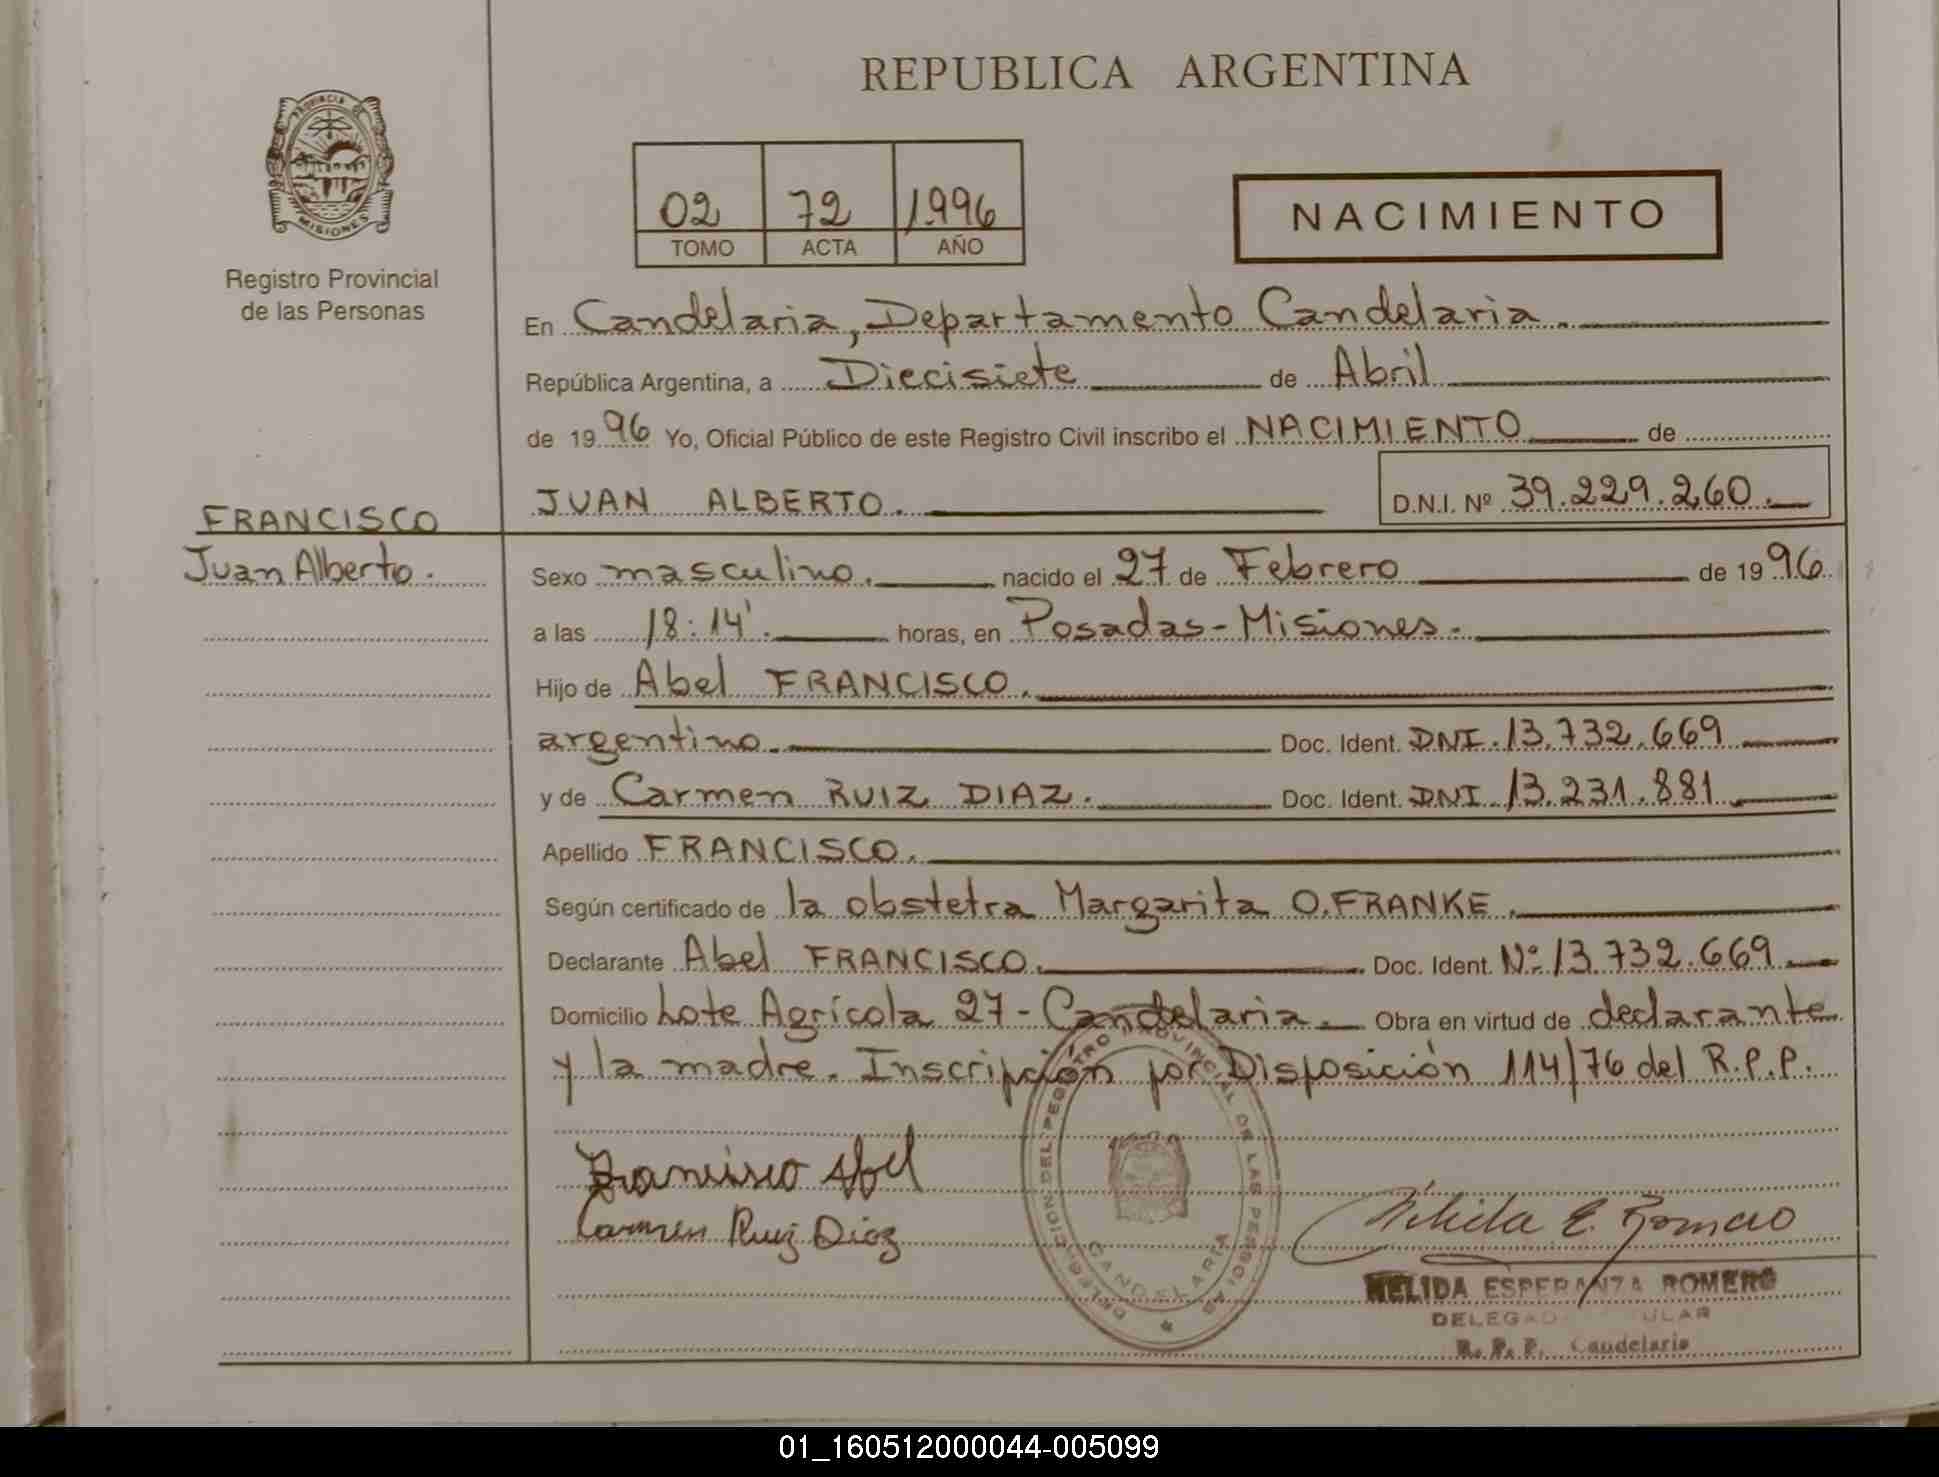 REPUBLICA ARGENTINA
PROVINCIA DE
MISIONES
Registro Provincial
de las Personas
02 72 1996
TOMO ACTA AÑO
NACIMIENTO
En Candelaria, Departamento Candelaria.
República Argentina, a Diecisiete de Abril
de 1996 Yo, Oficial Público de este Registro Civil inscribo el NACIMIENTO de
JUAN ALBERTO. D.N.I. Nº 39.229.260.
FRANCISCO
Juan Alberto.
Sexo masculino. nacido el 27 de Febrero de 1996
a las 18:14'. horas, en Posadas-Misiones.
Hijo de Abel FRANCISCO.
argentino. Doc. Ident. DNI. 13.732.669
y de Carmen RUIZ DIAZ. Doc. Ident. DNI 13.231.881
Apellido FRANCISCO.
Según certificado de la obstetra Margarita O. FRANKE.
Declarante Abel FRANCISCO. Doc. Ident. Nº 13.732.669
Domicilio Lote Agrícola 27-Candelaria. Obra en virtud de declarante
y la madre. Inscripción por Disposición 114/76 del R.P.P.
Francisco Abel
Carmen Ruiz Diaz
DELEGACION DEL REGISTRO PROVINCIAL DE LAS PERSONAS
CANDELARIA
Nélida E. Romero
NELIDA ESPERANZA ROMERO
R. P. P. Candelaria
01_160512000044-005099